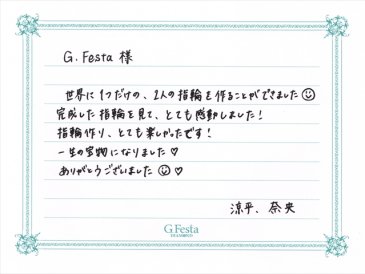 G.Festa 様
世界に1つだけの、2人の指輪を作ることができました☺
完成した指輪を見て、とても感動しました！
指輪作り、とても楽しかったです！
一生の宝物になりました♡
ありがとうございました☺♡
涼平、奈央
G.Festa